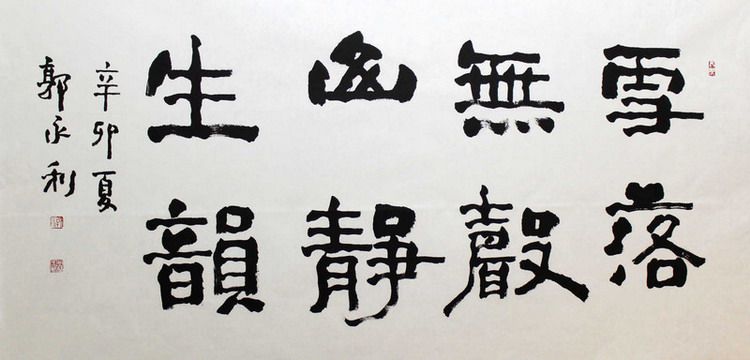 雪落
無聲
山靜
生韻
辛卯夏
郭永利